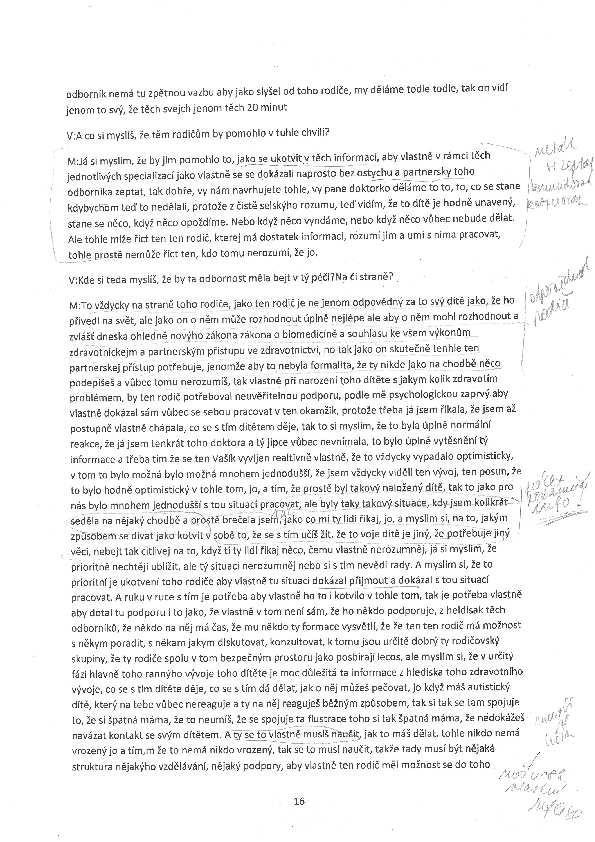 odborník nemá tu zpětnou vazbu aby jako slyšel od toho rodiče, my děláme todle todle, tak on vidí
jenom to svý, že těch svejch jenom těch 20 minut
V:A co si myslíš, že těm rodičům by pomohlo v tuhle chvíli?
M:Já si myslím, že by jim pomohlo to, jako se ukotvit v těch informací, aby vlastně v rámci těch
jednotlivých specializací jako vlastně se se dokázali naprosto bez ostychu a partnersky toho
odborníka zeptat, tak dobře, vy nám navrhujete tohle, vy pane doktorko děláme to to, to, co se stane
kdybychom teď to nedělali, protože z čistě selského rozumu, teď vidím, že to dítě je hodně unavený,
stane se něco, když něco opozdíme. Nebo když něco vyndáme, nebo když něco vůbec nebude dělat.
Ale tohle může říct ten ten rodič, kterej má dostatek informací, rozumí jim a umí s nima pracovat,
tohle prostě nemůže říct ten, kdo tomu nerozumí, že jo.
V:Kde si teda myslíš, že by ta odbornost měla bejt v tý péči?Na čí straně?
M:To vždycky na straně toho rodiče, jako ten rodič je nejenom odpovědný za to svý dítě jako, že ho
přivedl na svět, ale jako on o něm může rozhodnout úplně nejlépe ale aby o něm mohl rozhodnout a
zvlášť dneska ohledně nového zákona zákona o biomedicíně a souhlasu ke všem výkonům
zdravotnickejm a partnerským přístupu ve zdravotnictví, no tak jako on skutečně tenhle ten
partnerskej přístup potřebuje, jenomže aby to nebyla formalita, že ty nikde jako na chodbě něco
podepíšeš a vůbec tomu nerozumíš, tak vlastně při narození toho dítěte s jakým kolik zdravotím
problémem, by ten rodič potřeboval neuvěřitelnou podporu, podle mě psychologickou zaprvý aby
vlastně dokázal sám vůbec se sebou pracovat v ten okamžik, protože třeba já jsem říkala, že jsem až
postupně vlastně chápala, co se s tím dítětem děje, tak to si myslím, že to byla úplně normální
reakce, že já jsem tenkrát toho doktora a tý jipce vůbec nevnímala, to bylo úplně vytěsnění tý
informace a třeba tím že se ten Vašík vyvíjen realtivně vlastně, že to vždycky vypadalo optimisticky,
v tom to bylo možná bylo možná mnohem jednodušší, že jsem vždycky viděli ten vývoj, ten posun, že
to bylo hodně optimistický v tohle tom, jo, a tím, že prostě byl takový naložený dítě, tak to jako pro
nás bylo mnohem jednodušší s tou situací pracovat, ale byly taky takový situace, kdy jsem kolikrát
seděla na nějaký chodbě a prostě brečela jsem, jako co mi ty lidi říkaj, jo, a myslím si, na to, jakým
způsobem se dívat jako kotvil v sobě to, že se s tím učíš žít, že to voje dítě je jiný, že potřebuje jiný
věci, nebejt tak citlivej na to, když ti ty lidi říkaj něco, čemu vlastně nerozumněj, já si myslím, že
prioritně nechtějí ublížit, ale tý situaci nerozumněj nebo si s tím nevědí rady. A myslím si, že to
prioritní je ukotvení toho rodiče aby vlastně tu situaci dokázal přijmout a dokázal s tou situací
pracovat. A ruku v ruce s tím je potřeba aby vlastně ho to i kotvilo v tohle tom, tak je potřeba vlastně
aby dotal tu podporu i to jako, že vlastně v tom není sám, že ho někdo podporuje, z heldisak těch
odborníků, že někdo na něj má čas, že mu někdo ty formace vysvětlí, že že ten ten rodič má možnost
s někym poradit, s někam jakym diskutovat, konzultovat, k tomu jsou určitě dobrý ty rodičovský
skupiny, že ty rodiče spolu v tom bezpečným prostoru jako posbírají lecos, ale myslím si, že v určitý
fázi hlavně toho rannýho vývoje toho dítěte je moc důležitá ta informace z hlediska toho zdravotního
vývoje, co se s tím dítěte děje, co se s tím dá dělat, jak o něj můžeš pečovat, jo když máš autistický
dítě, který na tebe vůbec nereaguje a ty na něj reaguješ běžným způsobem, tak si tak se tam spojuje
to, že si špatná máma, že to neumíš, že se spojuje ta flustrace toho si tak špatná máma, že nedokážeš
navázat kontakt se svým dítětem. A ty se to vlastně musíš naučit, jak to máš dělat, tohle nikdo nemá
vrozený jo a tím,m že to nemá nikdo vrozený, tak se to musí naučit, takže tady musí být nějaká
struktura nějakýho vzdělávání, nějaký podpory, aby vlastně ten rodič měl možnost se do toho
16